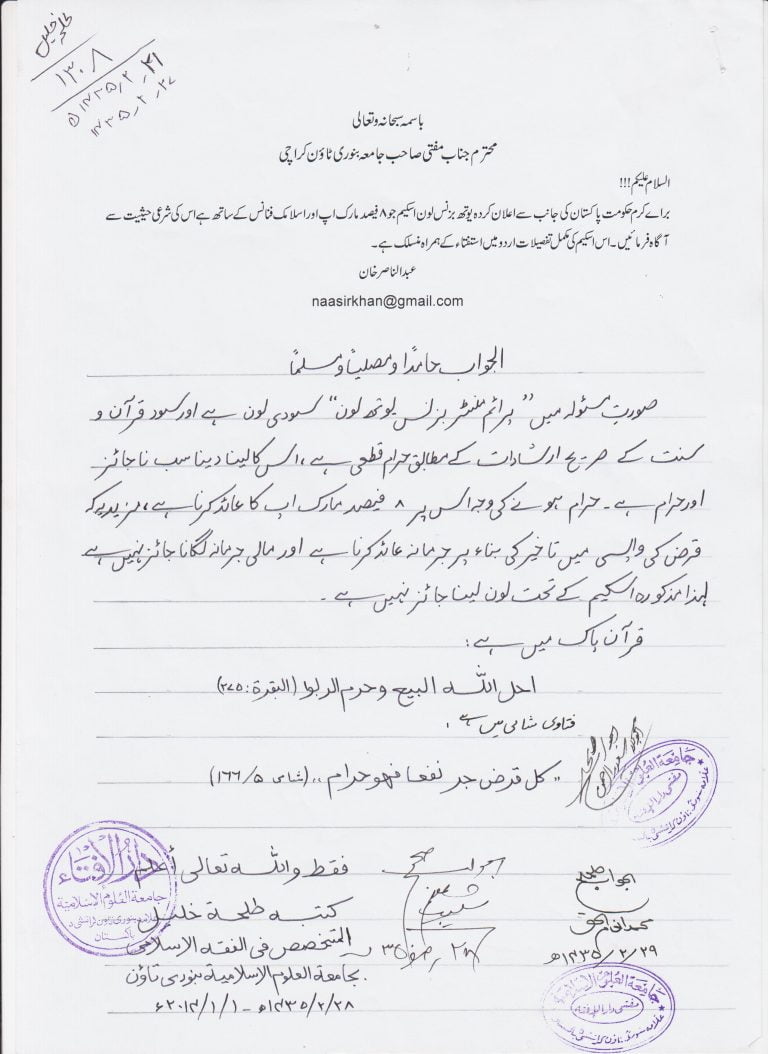 طلحہ خلیل
۱۳۰۸
باسمہ سبحانہ وتعالی
محترم جناب مفتی صاحب جامعہ بنوری ٹاؤن کراچی
السلام علیکم!!!
برائے کرم حکومت پاکستان کی جانب سے اعلان کردہ یوتھ بزنس لون اسکیم جو ۸ فیصد مارک اپ اور اسلامک فنانس کے ساتھ ہے اس کی شرعی حیثیت سے
آگاہ فرمائیں۔ اس اسکیم کی مکمل تفصیلات اردو میں استفتاء کے ہمراہ منسلک ہے۔
عبدالناصر خان
naasirkhan@gmail.com
الجواب حامدًا ومصلیًا ومسلمًا
صورتِ مسئولہ میں "پرائم منسٹر بزنس یوتھ لون" سودی لون ہے اور سود قرآن و
سنت کے صریح ارشادات کے مطابق حرام قطعی ہے، اس کا لینا دینا سب ناجائز
اور حرام ہے۔ حرام ہونے کی وجہ اس پر ۸ فیصد مارک اپ کا عائد کرنا ہے، مزید یہ کہ
قرض کی واپسی میں تاخیر کی بناء پر جرمانہ عائد کرنا ہے اور مالی جرمانہ لگانا جائز نہیں ہے
لہذا مذکورہ اسکیم کے تحت لون لینا جائز نہیں ہے۔
قرآن پاک میں ہے:
احل اللہ البیع وحرم الربوا (البقرة: ۲۷۵)
فتاوی شامی میں ہے:
"کل قرض جر نفعا فهو حرام،، (شامی ۵/۱۶۶)
فقط واللہ تعالی أعلم
کتبہ طلحة خلیل
المتخصص فی الفقه الاسلامی
بجامعة العلوم الاسلامیة بنوری تاؤن
۱۴۳۵/۲/۲۸ھ - ۲۰۱۴/۱/۱ء
الجواب صحیح
الجواب صحیح
۱۴۳۵/۲/۲۹ھ
دار الإفتاء
جامعة العلوم الاسلامیة
پاکستان